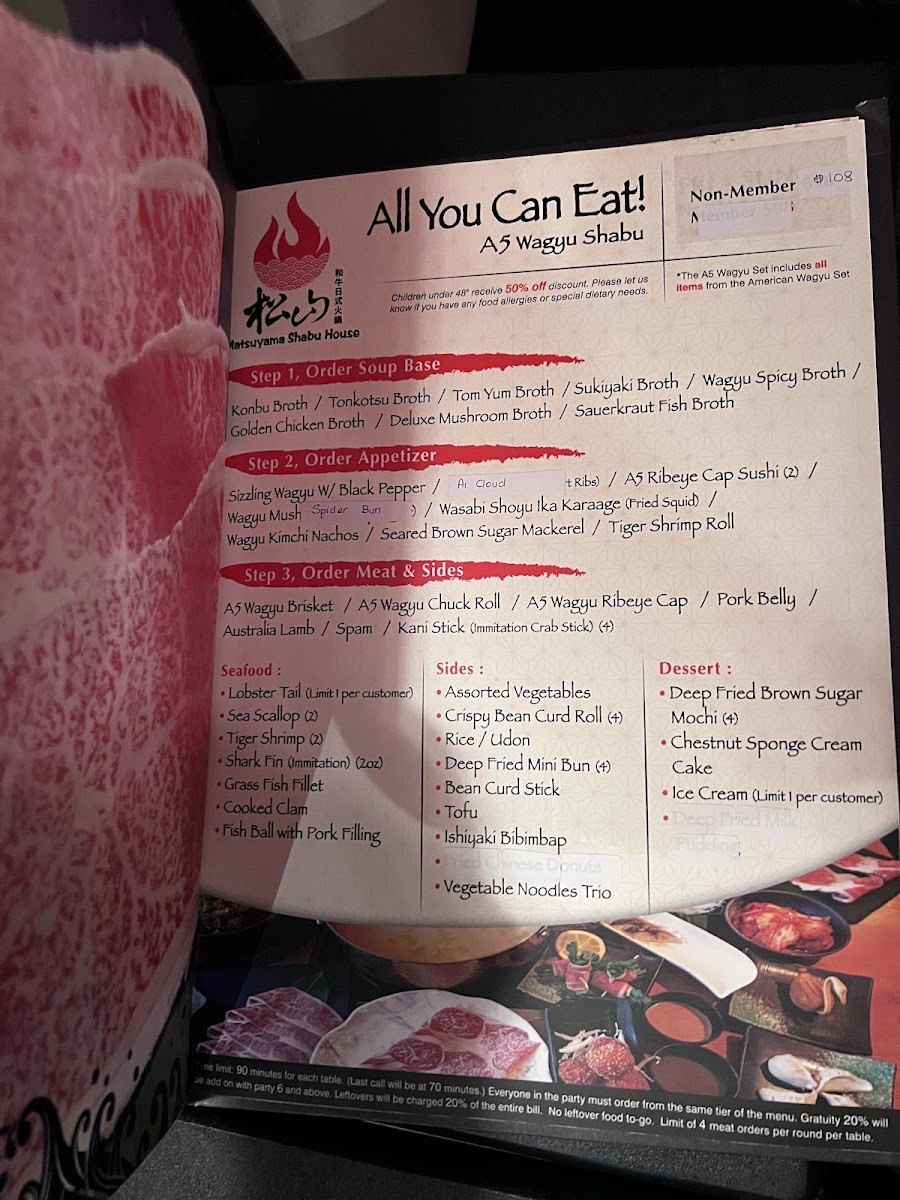 All You Can Eat!
A5 Wagyu Shabu
Non-Member $108
Children under 48" receive 50% off discount. Please let us
know if you have any food allergies or special dietary needs.
*The A5 Wagyu Set includes all
items from the American Wagyu Set
和牛日式火鍋
松山
Matsuyama Shabu House
Step 1, Order Soup Base
Konbu Broth / Tonkotsu Broth / Tom Yum Broth / Sukiyaki Broth / Wagyu Spicy Broth /
Golden Chicken Broth / Deluxe Mushroom Broth / Sauerkraut Fish Broth
Step 2, Order Appetizer
Sizzling Wagyu W/ Black Pepper / Cloud t Ribs) / A5 Ribeye Cap Sushi (2) /
Wagyu Mush Spider Bun ) / Wasabi Shoyu Ika Karaage (Fried Squid) /
Wagyu Kimchi Nachos / Seared Brown Sugar Mackerel / Tiger Shrimp Roll
Step 3, Order Meat & Sides
A5 Wagyu Brisket / A5 Wagyu Chuck Roll / A5 Wagyu Ribeye Cap / Pork Belly /
Australia Lamb / Spam / Kani Stick (Immitation Crab Stick) (4)
Seafood :
• Lobster Tail (Limit 1 per customer)
• Sea Scallop (2)
• Tiger Shrimp (2)
• Shark Fin (Immitation) (2oz)
• Grass Fish Fillet
• Cooked Clam
• Fish Ball with Pork Filling
Sides :
• Assorted Vegetables
• Crispy Bean Curd Roll (4)
• Rice / Udon
• Deep Fried Mini Bun (4)
• Bean Curd Stick
• Tofu
• Ishiyaki Bibimbap
• Fried Chinese Donuts
• Vegetable Noodles Trio
Dessert :
• Deep Fried Brown Sugar
Mochi (4)
• Chestnut Sponge Cream
Cake
• Ice Cream (Limit 1 per customer)
• Deep Fried Milk
Pudding
ne limit: 90 minutes for each table. (Last call will be at 70 minutes.) Everyone in the party must order from the same tier of the menu. Gratuity 20% will
be add on with party 6 and above. Leftovers will be charged 20% of the entire bill. No leftover food to-go. Limit of 4 meat orders per round per table.